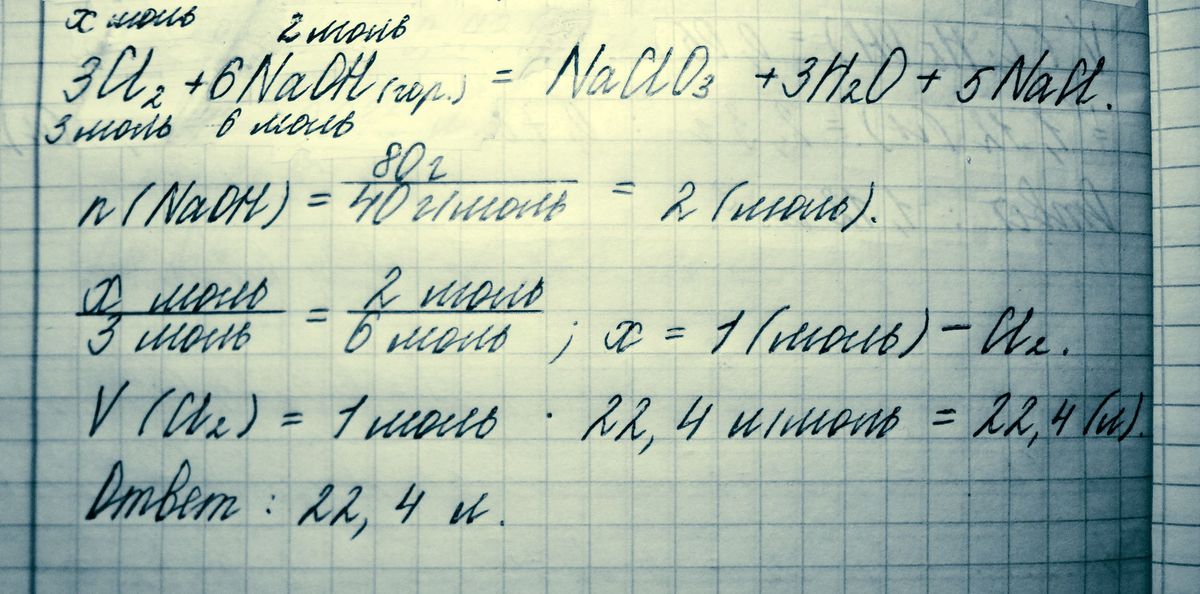 x моль 2 моль
3Cl₂ + 6NaOH (гор.) = NaClO₃ + 3H₂O + 5NaCl.
3 моль 6 моль
n (NaOH) = 80 г / 40 г/моль = 2 (моль).
x моль / 3 моль = 2 моль / 6 моль ; x = 1 (моль) – Cl₂.
V (Cl₂) = 1 моль · 22,4 л/моль = 22,4 (л).
Ответ : 22, 4 л.